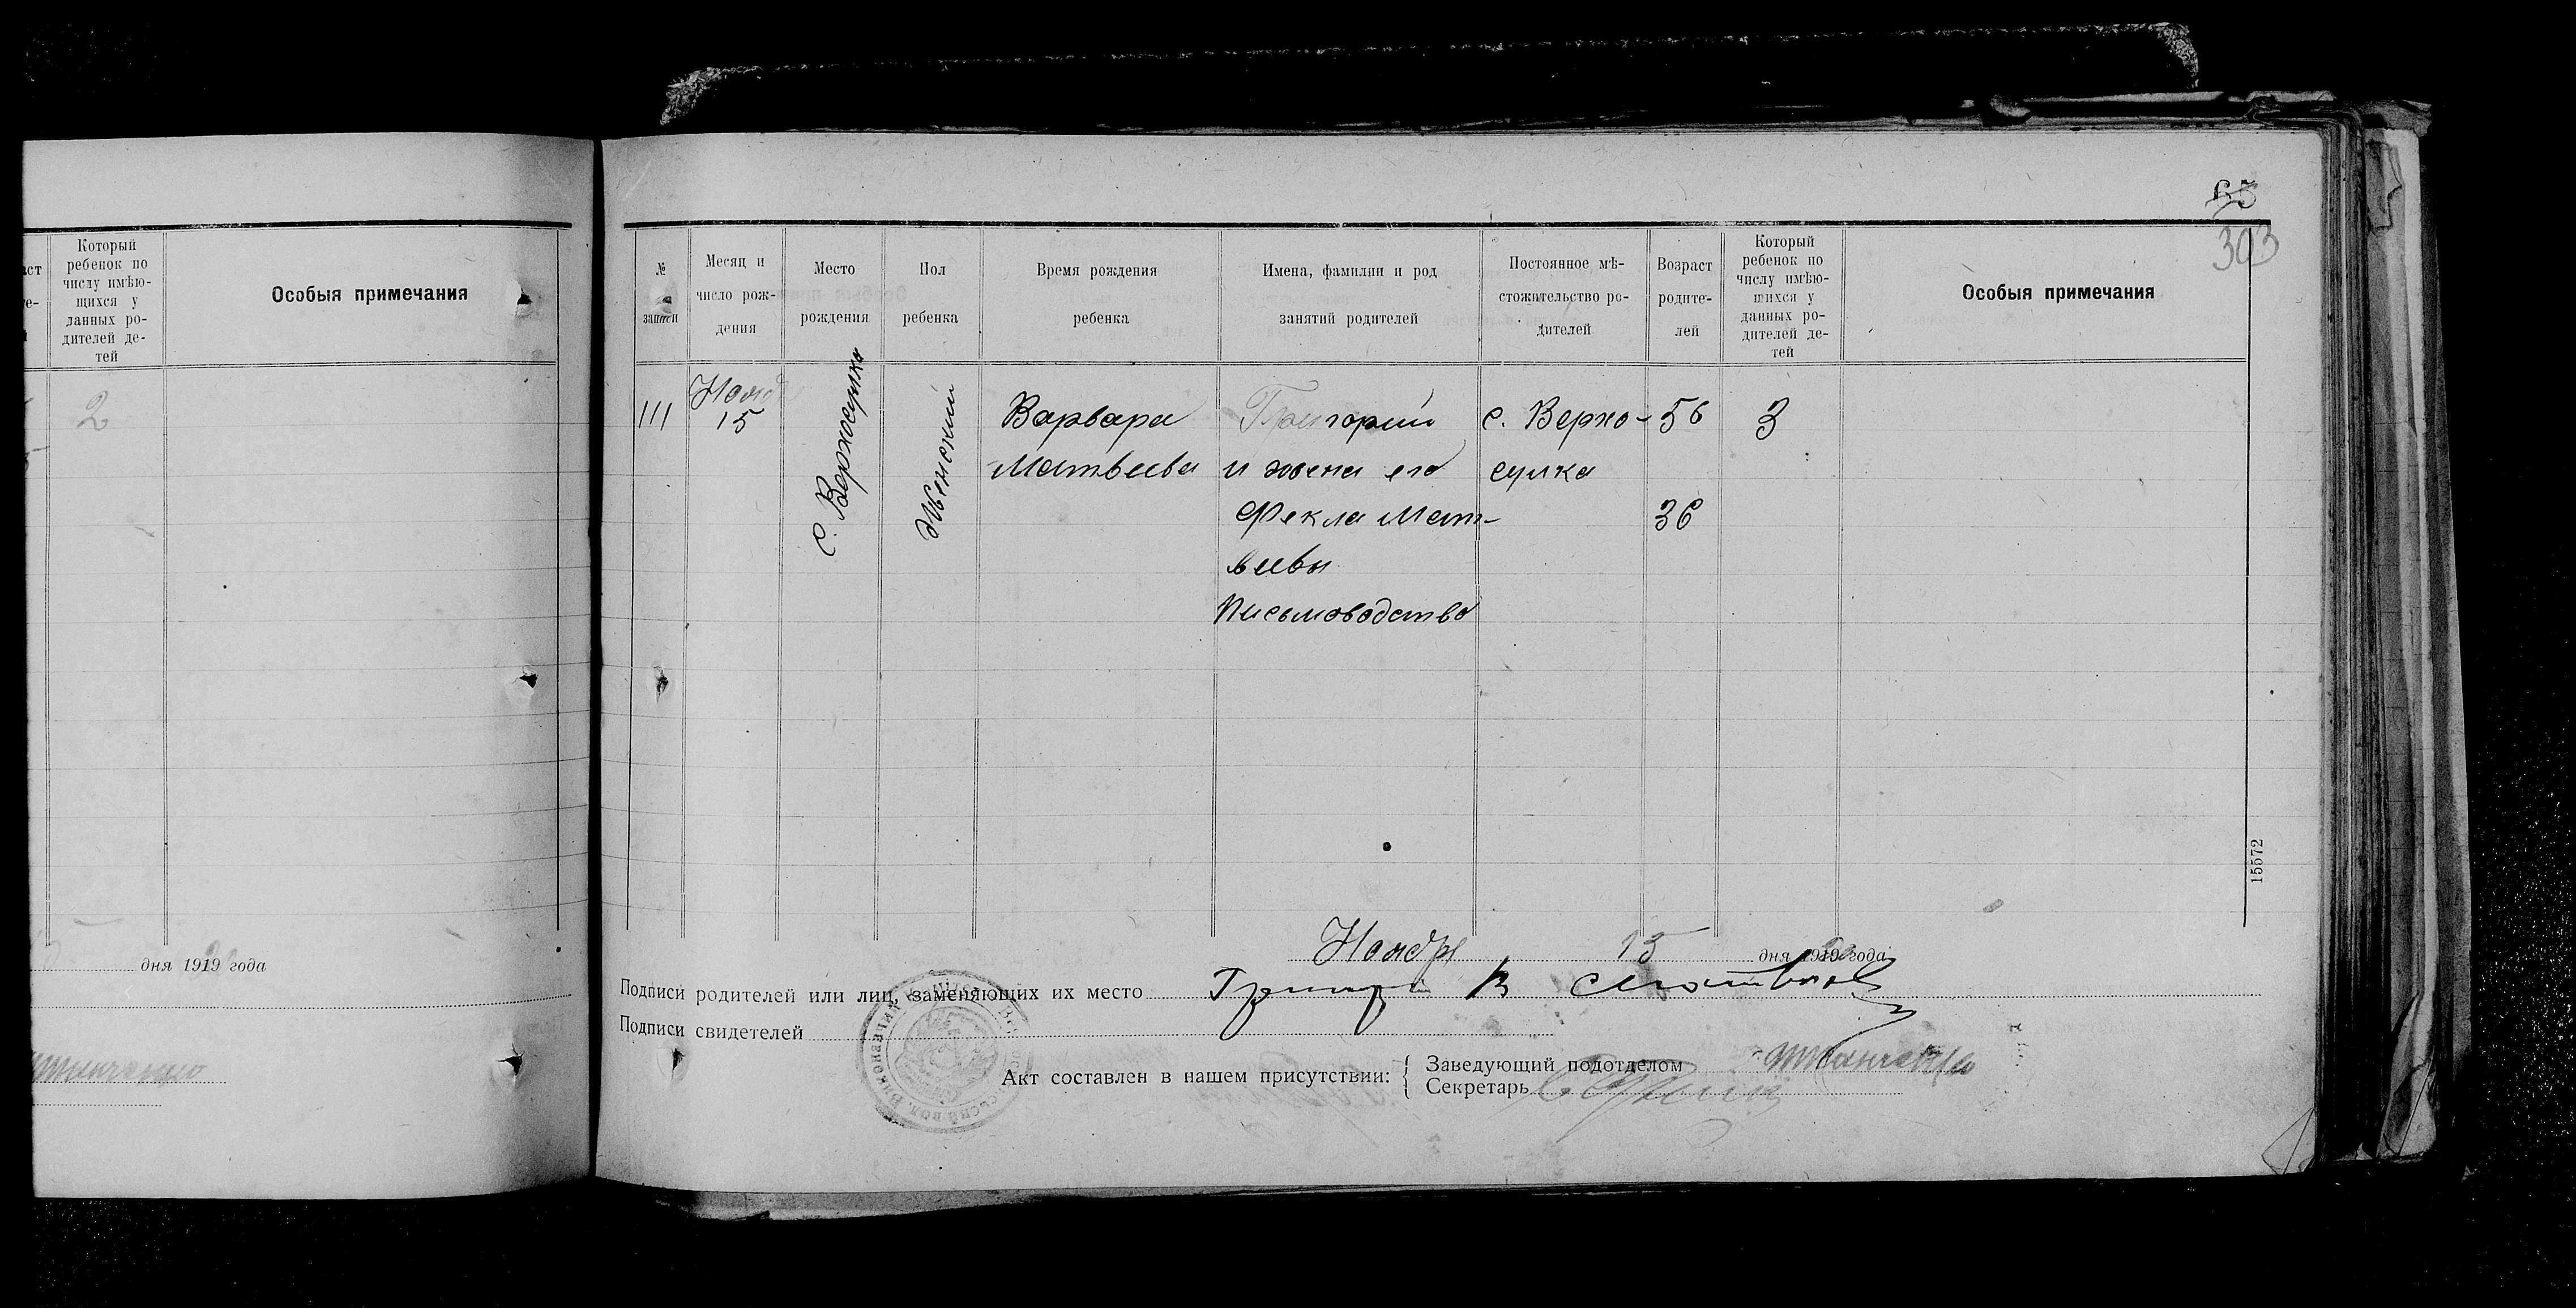 Который
ребенок по
числу имѣю-
щихся у
данных ро-
дителей де-
тей
Особыя примечания
2
дня 1919 года
65
303
№
записи
Месяц и
число рож-
дения
Место
рождения
Пол
ребенка
Время рождения
ребенка
Имена, фамилии и род
занятий родителей
Постоянное мѣ-
стожительство ро-
дителей
Возраст
родите-
лей
Который
ребенок по
числу имѣю-
щихся у
данных ро-
дителей де-
тей
Особыя примечания
111
Нояб
15
с. Верхосулка
Женский
Варвара
Матвеева
Григорий
и жена его
Фекла Мат-
веевы
Письмоводство
с. Верхо-
сулка
56
36
3
15572
Ноября 15 дня 1919 года
Подписи родителей или лиц, заменяющих их место Григорий В Матвеев
Подписи свидетелей
Акт составлен в нашем присутствии:
Заведующий подотделом
Секретарь